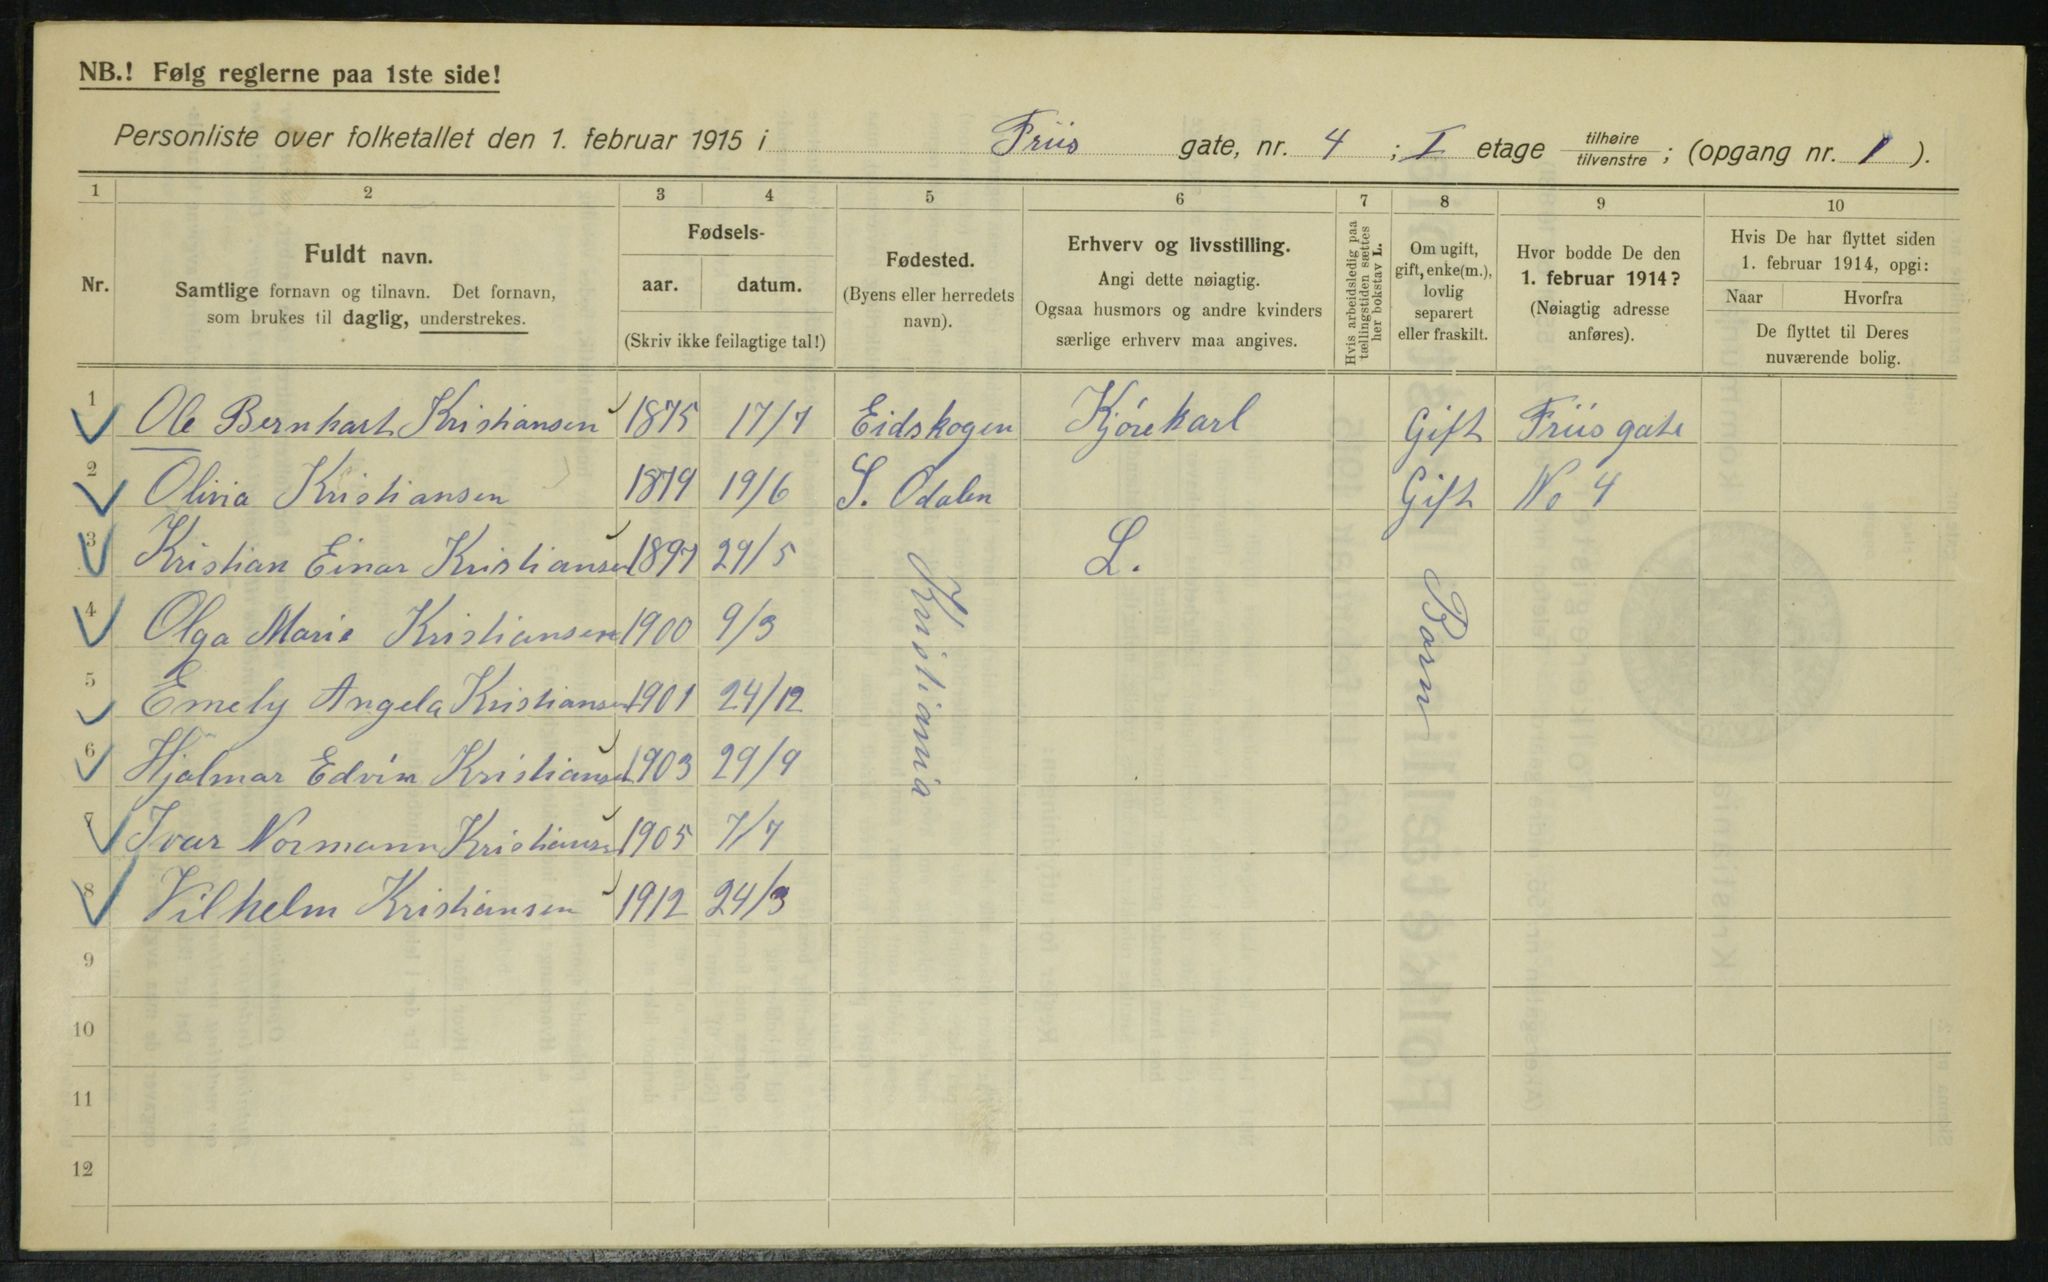 NB.! Følg reglerne paa 1ste side!
Personliste over folketallet den 1. februar 1915 i Friis gate, nr. 4 ; I etage tilhøire / tilvenstre ; (opgang nr. 1 ).
1 2 3 4 5 6 7 8 9 10
Nr.
Fuldt navn.
Samtlige fornavn og tilnavn. Det fornavn,
som brukes til daglig, understrekes.
Fødsels-
aar. datum.
(Skriv ikke feilagtige tal!)
Fødested.
(Byens eller herredets
navn).
Erhverv og livsstilling.
Angi dette nøiagtig.
Ogsaa husmors og andre kvinders
særlige erhverv maa angives.
Hvis arbeidsledig paa
tællingstiden sættes
her bokstav L.
Om ugift,
gift, enke(m.),
lovlig
separert
eller fraskilt.
Hvor bodde De den
1. februar 1914?
(Nøiagtig adresse
anføres).
Hvis De har flyttet siden
1. februar 1914, opgi:
Naar Hvorfra
De flyttet til Deres
nuværende bolig.
1 Ole Bernhart Kristiansen 1875 17/7 Eidskogen Kjörekarl Gift Friisgate
2 Olivia Kristiansen 1879 19/6 S. Odalen Gift No 4
3 Kristian Einar Kristiansen 1897 29/5 L.
4 Olga Marie Kristiansen 1900 9/3
5 Emely Angela Kristiansen 1901 24/12
6 Hjalmar Edvin Kristiansen 1903 29/9
7 Ivar Normann Kristiansen 1905 7/7
8 Vilhelm Kristiansen 1912 24/3
Kristiania
Barn
9
10
11
12